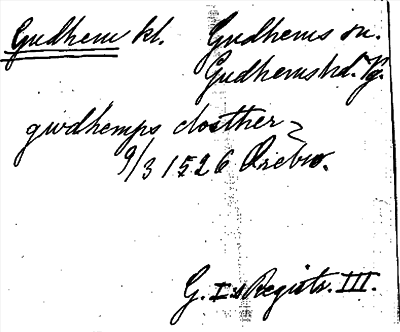 Gudhem kl. Gudhems sn.
Gudhems hd. Vg.
gwdhemps closther
9/3 1526 Örebro.
G. I:s Registr. III.